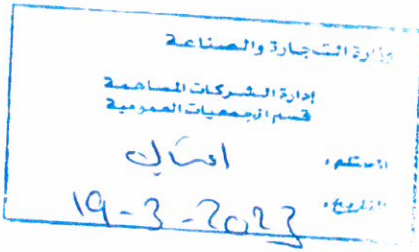 وزارة التجارة والصناعة
إدارة الشركات المساهمة
قسم الجمعيات العمومية
المستلم:
التاريخ: 19-3-2023